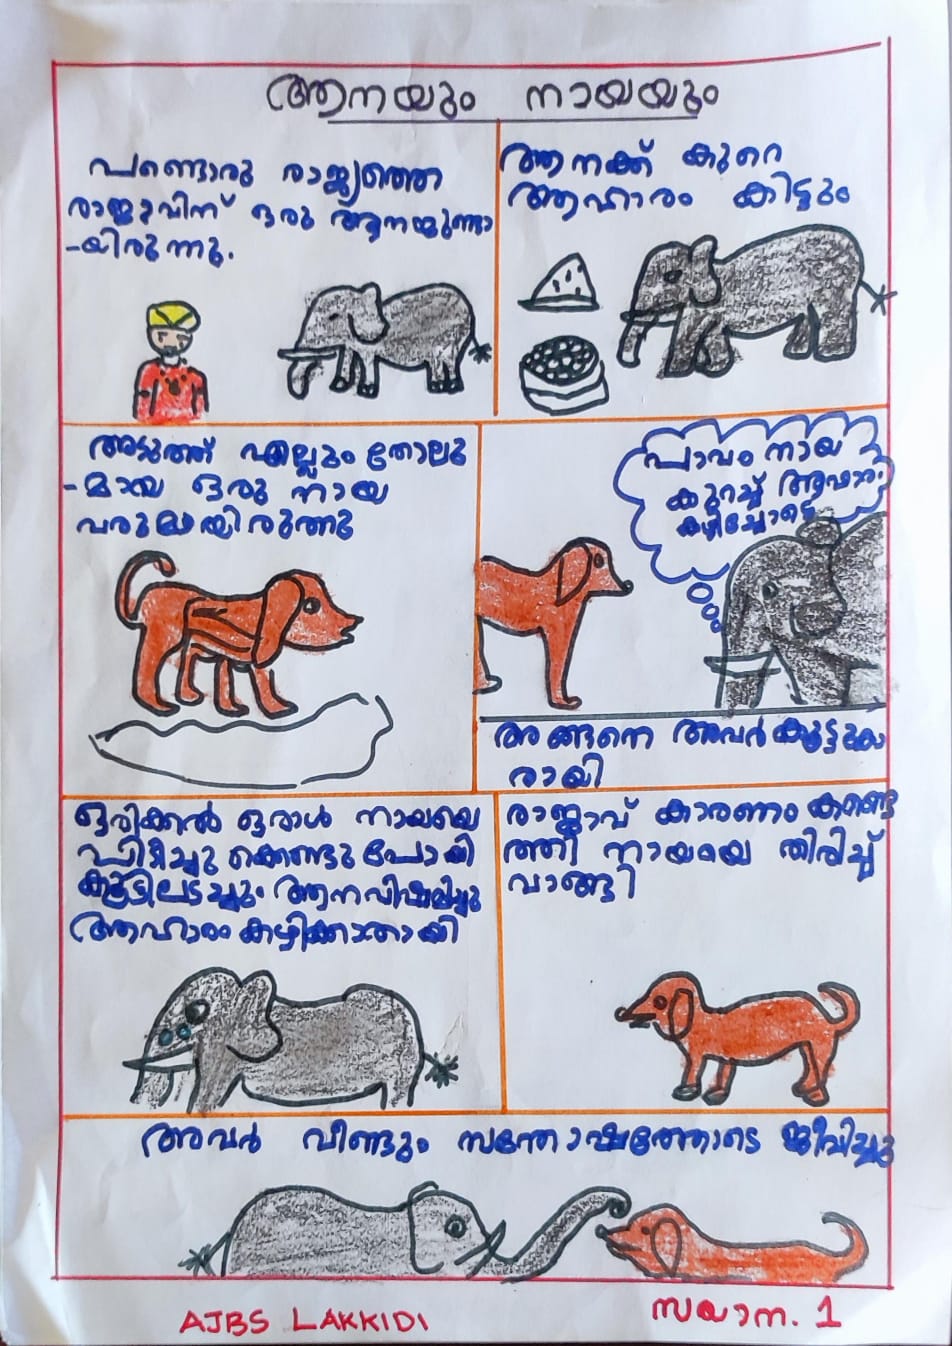 ആനയും നായയും
പണ്ടൊരു രാജ്യത്തെ
രാജാവിന് ഒരു ആനയുണ്ടാ
-യിരുന്നു.
ആനക്ക് കുറെ
ആഹാരം കിട്ടും
അടുത്ത് എല്ലും തോലു
-മായ ഒരു നായ
വരുമായിരുന്നു
പാവം നായ
കുറച്ച് ആഹാരം
കഴിച്ചോട്ടെ
അങ്ങനെ അവർ കൂട്ടുകാ
രായി
ഒരിക്കൽ ഒരാൾ നായയെ
പിടിച്ചു കൊണ്ടു പോയി
കൂട്ടിലടച്ചും ആന വിഷമിച്ചു
ആഹാരം കഴിക്കാതായി
രാജാവ് കാരണം കണ്ടെ
ത്തി നായയെ തിരിച്ച്
വാങ്ങി
അവർ വീണ്ടും സന്തോഷത്തോടെ ജീവിച്ചു
AJBS LAKKIDI
സയാന. 1